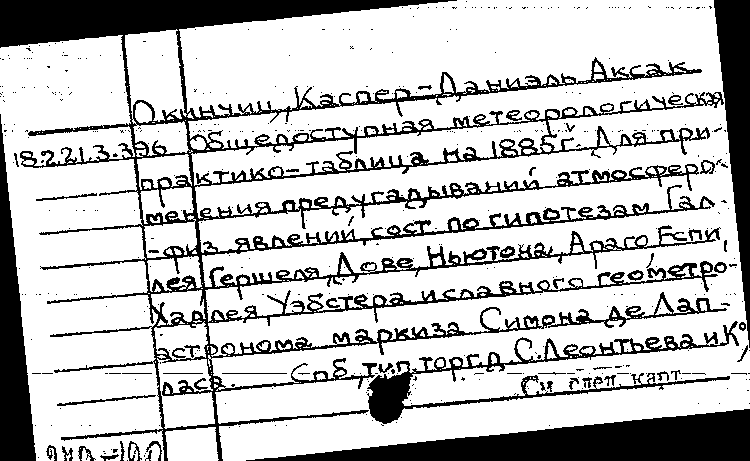 Окинчиц, Каспер-Даниэль Аксак
18.221.3.396 Общедоступная метеорологическая
практико-таблица на 1885г. Для при-
менения предугадываний атмосферо-
-физ явлений, сост по гипотезам Гал-
лея, Гершеля, Дове, Ньютона, Араго Еспи,
Хадлея, Уэбстера и славного геометро-
астронома маркиза Симона де Лап-
ласа. Спб., тип. торг.д С.Леонтьева и К°,
См след. карт